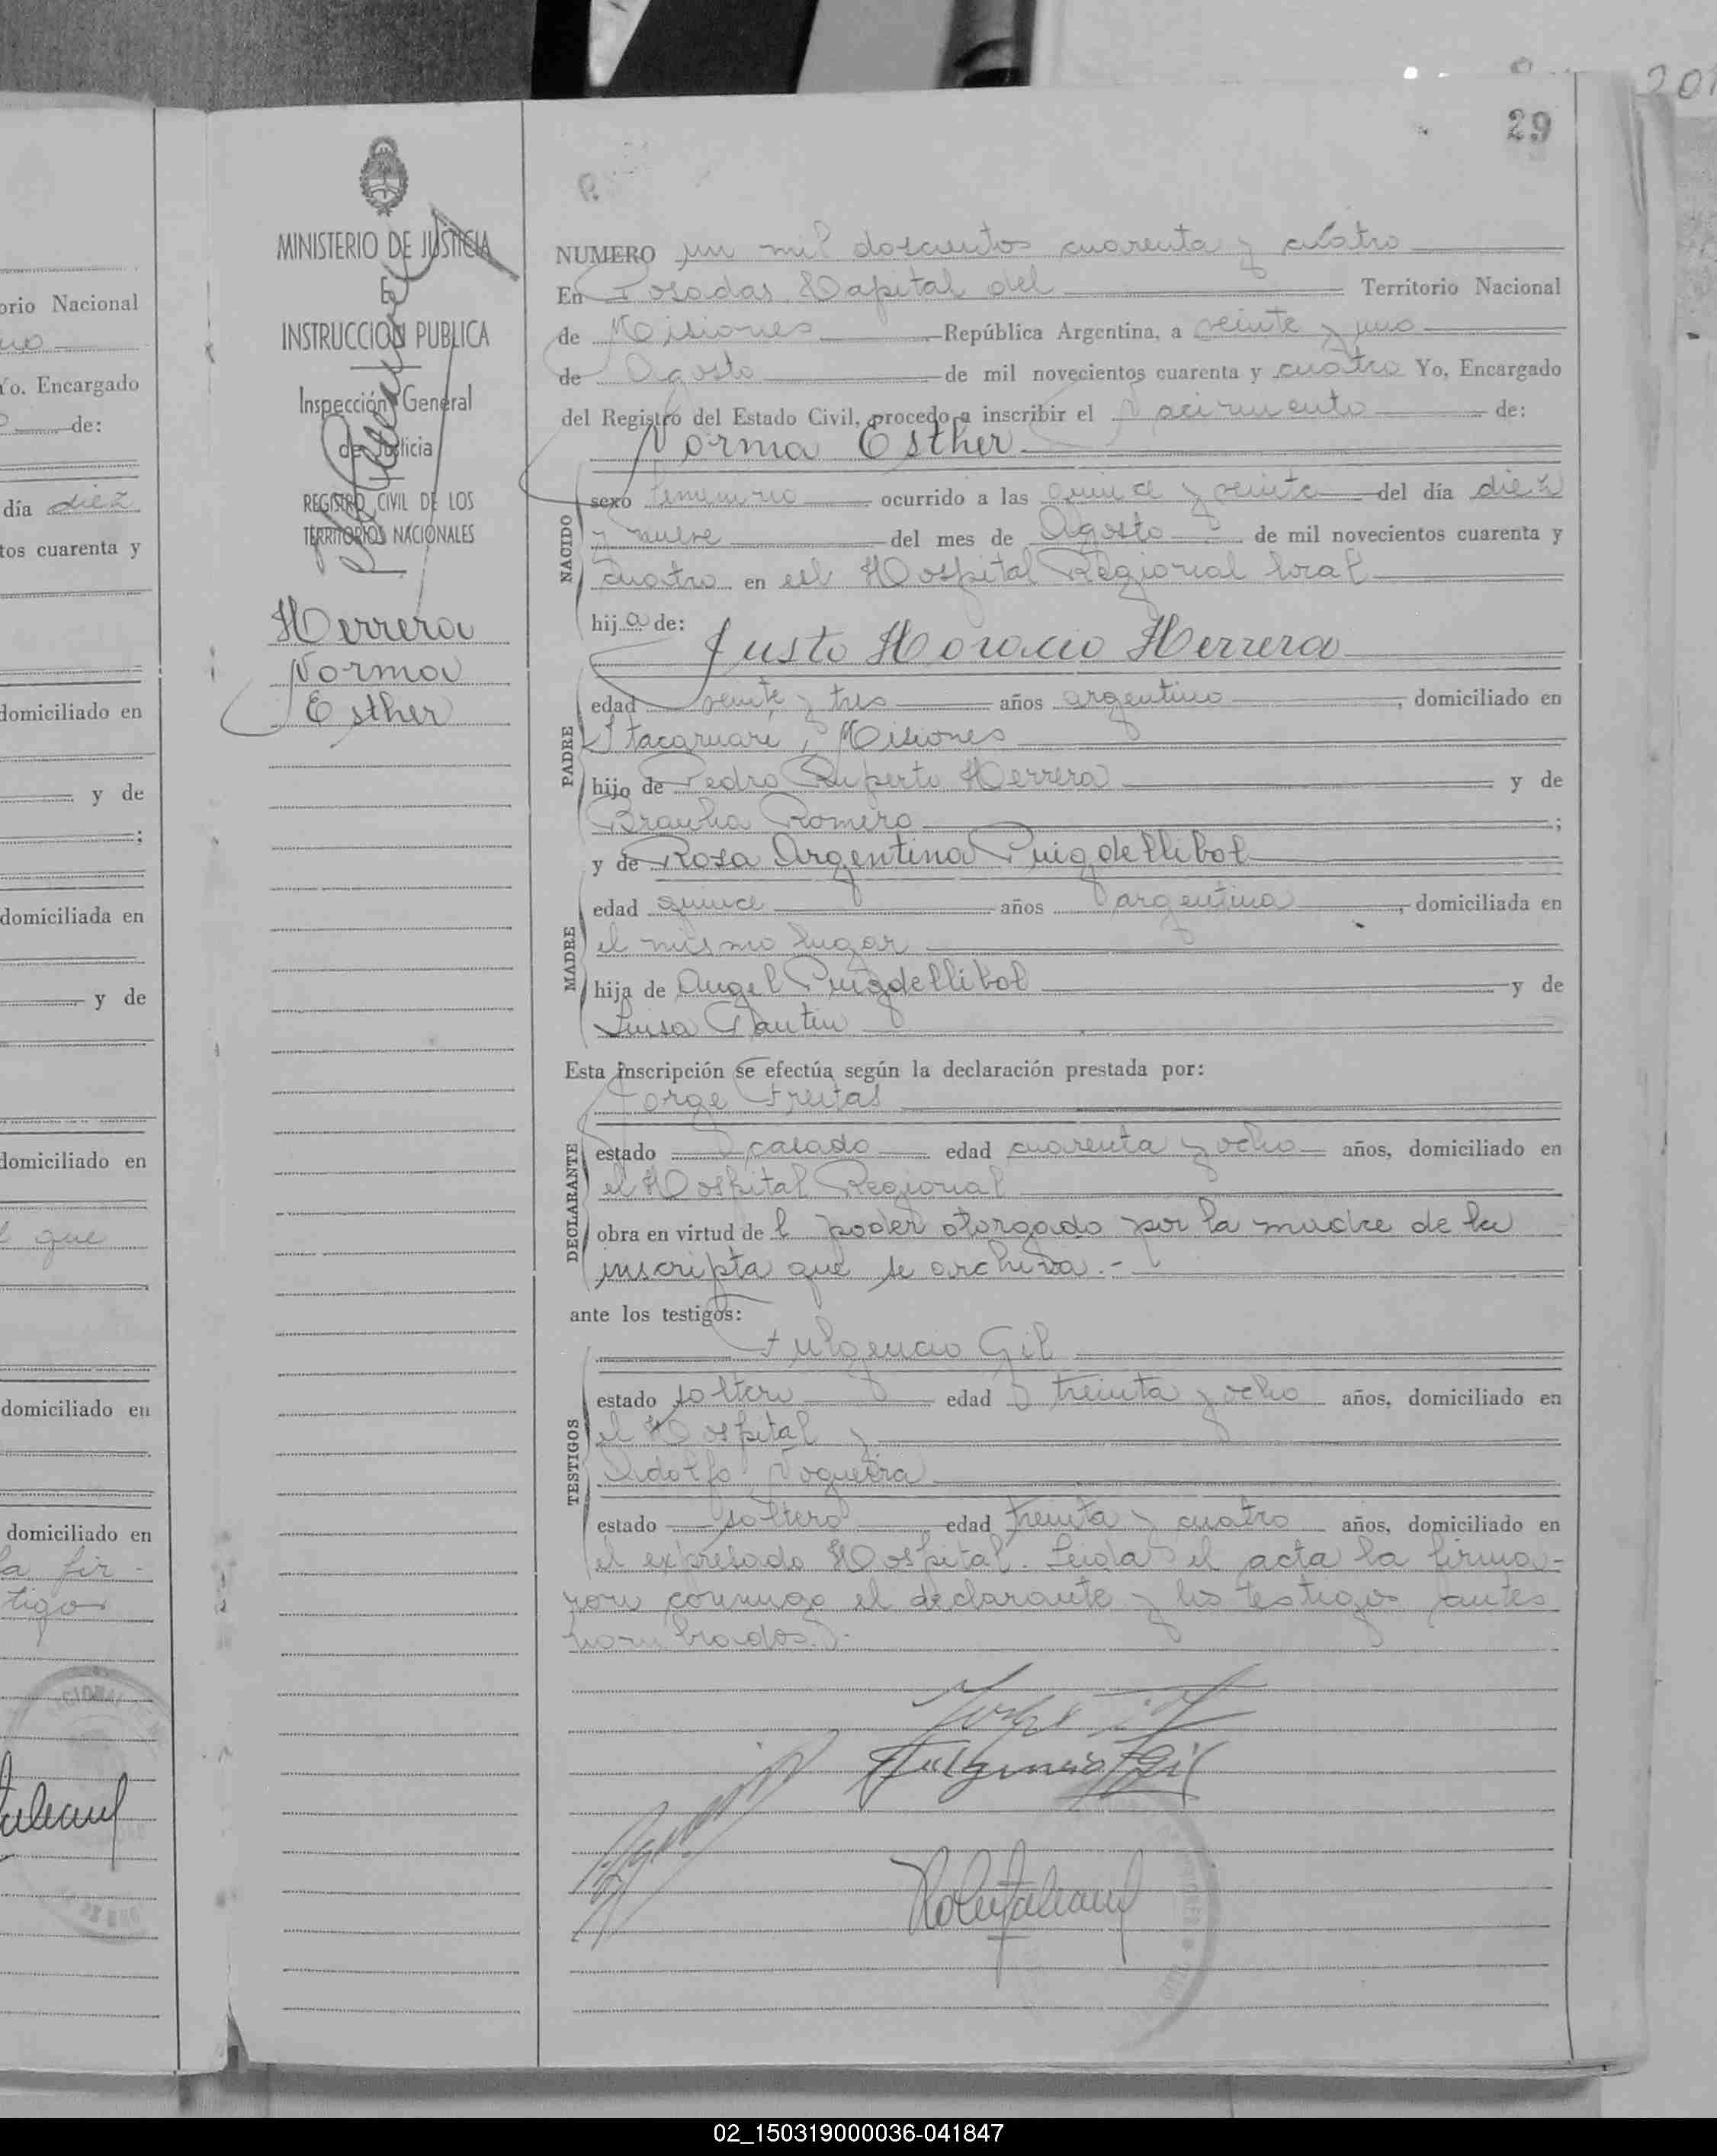 29
MINISTERIO DE JUSTICIA
INSTRUCCION PUBLICA
Inspección General
de Justicia
REGISTRO CIVIL DE LOS
TERRITORIOS NACIONALES
Herrera
Norma
Esther
NUMERO un mil doscientos cuarenta y cuatro
En Posadas Capital del Territorio Nacional
de Misiones República Argentina, a veinte y uno
de Agosto de mil novecientos cuarenta y cuatro Yo, Encargado
del Registro del Estado Civil, procedo a inscribir el Nacimiento de:
Norma Esther
NACIDO
sexo femenino ocurrido a las quince y veinte del día diez
y nueve del mes de Agosto de mil novecientos cuarenta y
cuatro en el Hospital Regional local
hija de:
Justo Horacio Herrera
PADRE
edad veinte y tres años argentino, domiciliado en
Itacaruaré, Misiones
hijo de Pedro Ruperto Herrera y de
Braulia Romero;
y de Rosa Argentina Puigdellibol
MADRE
edad quince años argentina, domiciliada en
el mismo lugar
hija de Angel Puigdellibol y de
Luisa
Esta inscripción se efectúa según la declaración prestada por:
Jorge Freitas
DECLARANTE
estado casado edad cuarenta y ocho años, domiciliado en
el Hospital Regional
obra en virtud del poder otorgado por la madre de la
inscripta que se archiva.-
ante los testigos:
Fulgencio Gil
TESTIGOS
estado soltero edad treinta y ocho años, domiciliado en
el Hospital y
Adolfo Nogueira
estado soltero edad treinta y cuatro años, domiciliado en
el expresado Hospital. Leida el acta la firma-
ron conmigo el declarante y los testigos antes
nombrados.-
Fulgencio Gil
orio Nacional
Yo. Encargado
de:
día diez
tos cuarenta y
domiciliado en
y de
;
domiciliada en
y de
domiciliado en
que
domiciliado en
domiciliado en
la fir-
tigos
02_150319000036-041847